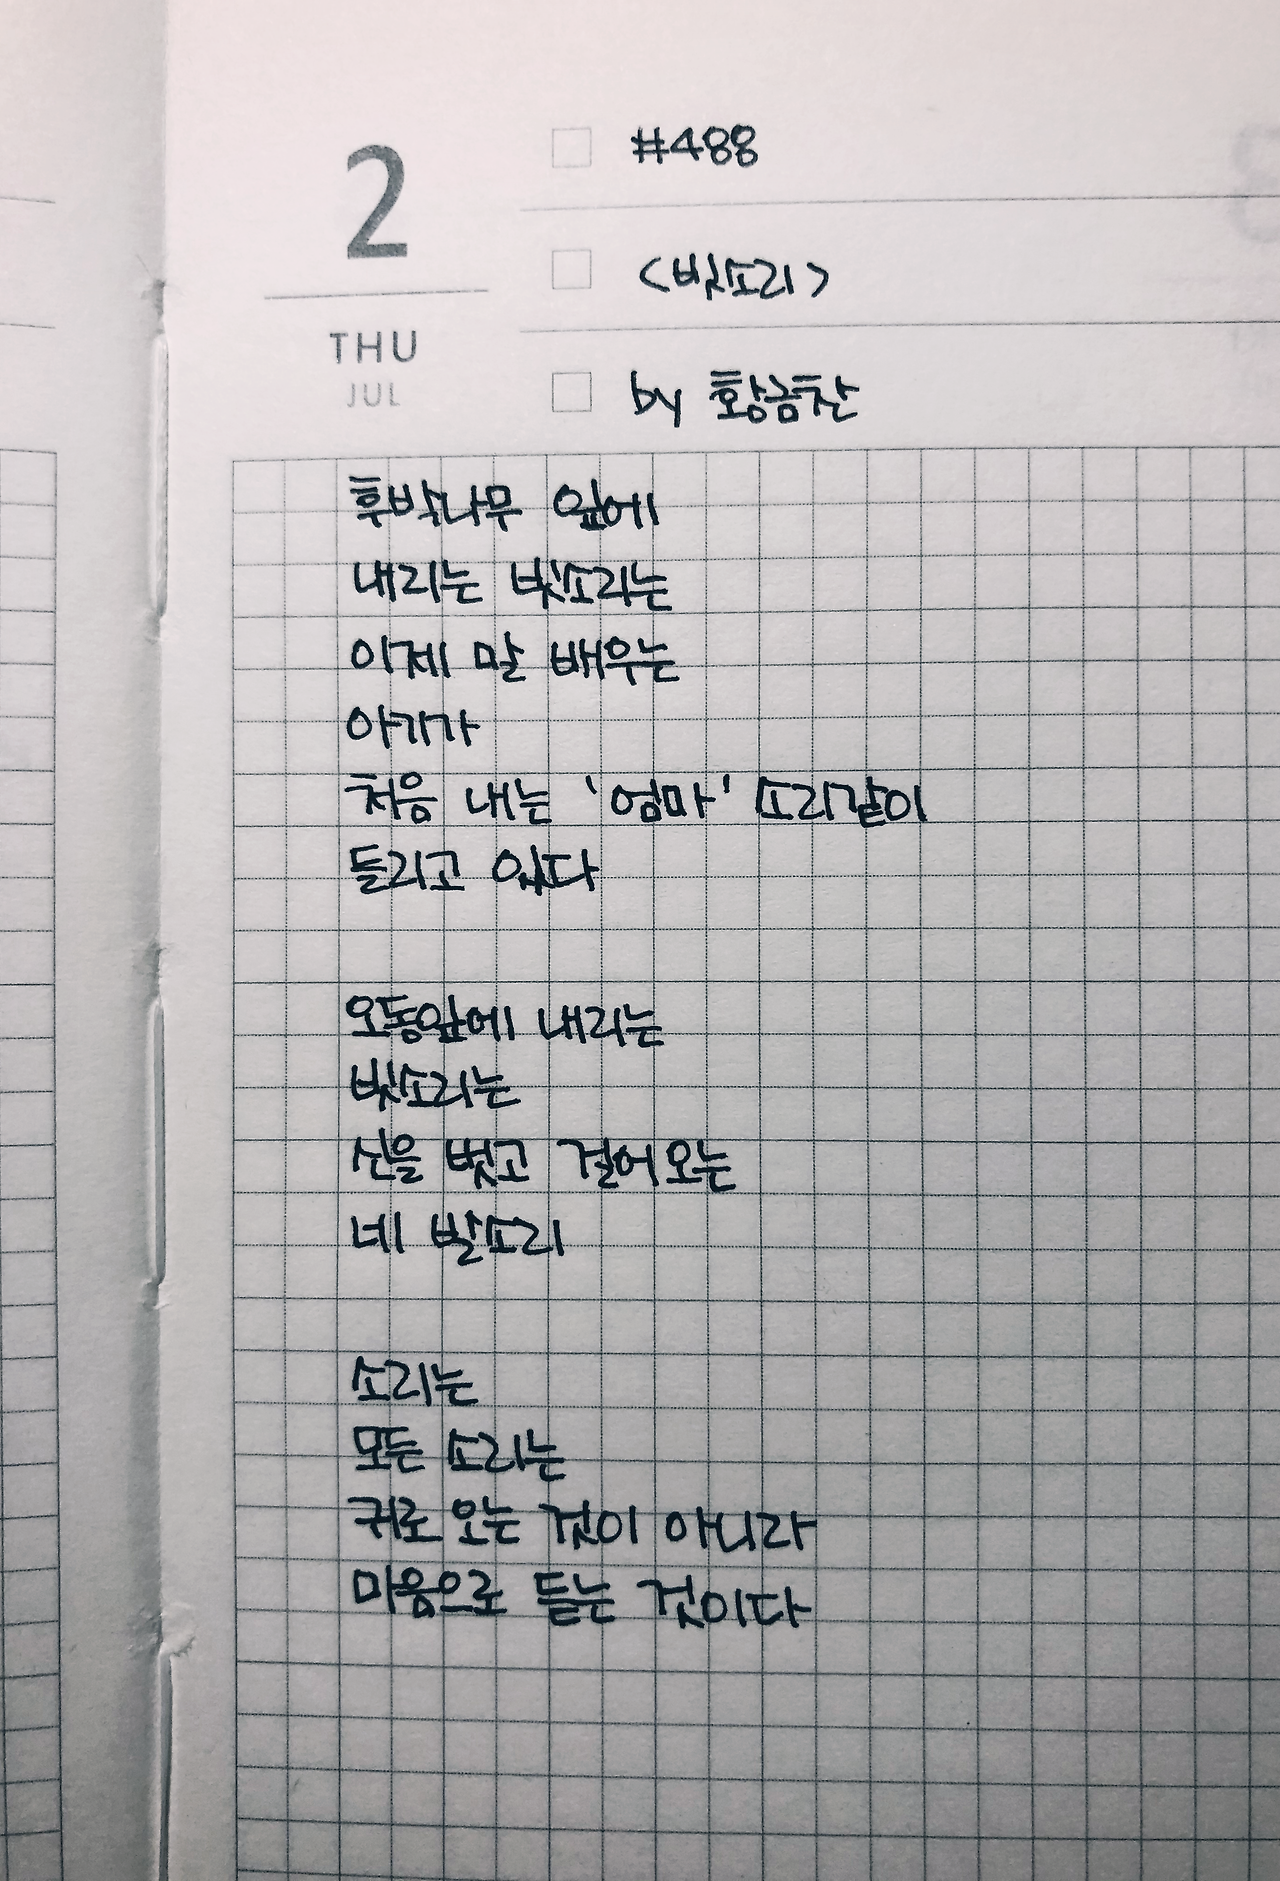 2
THU
JUL
#488
<빗소리>
by 황금찬
후박나무 잎에
내리는 빗소리는
이제 말 배우는
아기가
처음 내는 '엄마' 소리같이
들리고 있다
오동잎에 내리는
빗소리는
신을 벗고 걸어오는
네 발소리
소리는
모든 소리는
귀로 오는 것이 아니라
마음으로 듣는 것이다